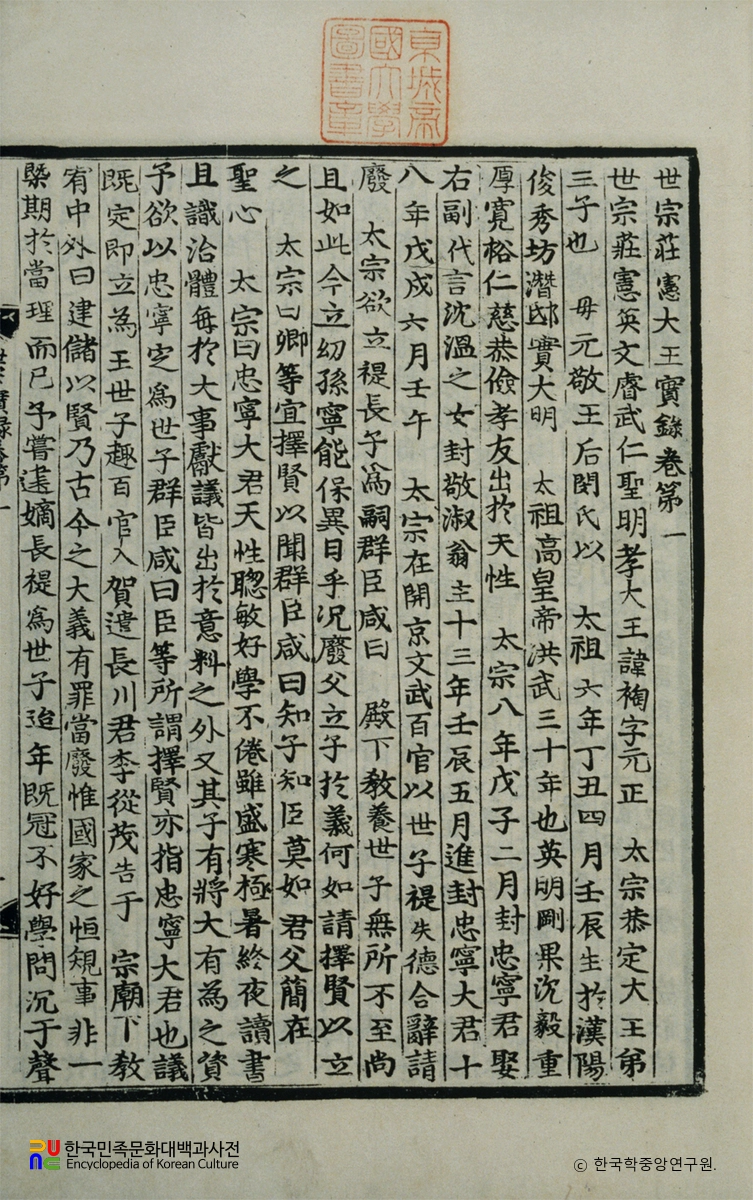 京城帝
國大學
圖書章
世宗莊憲大王實錄卷第一
世宗莊憲英文睿武仁聖明孝大王諱祹字元正 太宗恭定大王第
三子也 母元敬王后閔氏以 太祖六年丁丑四月壬辰生於漢陽
俊秀坊潛邸實大明 太祖高皇帝洪武三十年也英明剛果沉毅重
厚寬裕仁慈恭儉孝友出於天性 太宗八年戊子二月封忠寧君娶
右副代言沈溫之女封敬淑翁主十三年壬辰五月進封忠寧大君十
八年戊戌六月壬午 太宗在開京文武百官以世子禔失德合辭請
廢 太宗欲立禔長子爲嗣群臣咸曰 殿下敎養世子無所不至尚
且如此今立幼孫寧能保異日乎況廢父立子於義何如請擇賢以立
之 太宗曰卿等宜擇賢以聞群臣咸曰知子知臣莫如君父簡在
聖心 太宗曰忠寧大君天性聰敏好學不倦雖盛寒極暑終夜讀書
且識治體每於大事獻議皆出於意料之外又其子有將大有爲之資
予欲以忠寧定爲世子群臣咸曰臣等所謂擇賢亦指忠寧大君也議
旣定卽立爲王世子趣百官入賀遣長川君李從茂告于 宗廟下敎
宥中外曰建儲以賢乃古今之大義有罪當廢惟國家之恒規事非一
槩期於當理而已予嘗建嫡長禔爲世子迨年旣冠不好學問沉于聲
世宗實錄卷第一
한국민족문화대백과사전
Encyclopedia of Korean Culture
© 한국학중앙연구원.